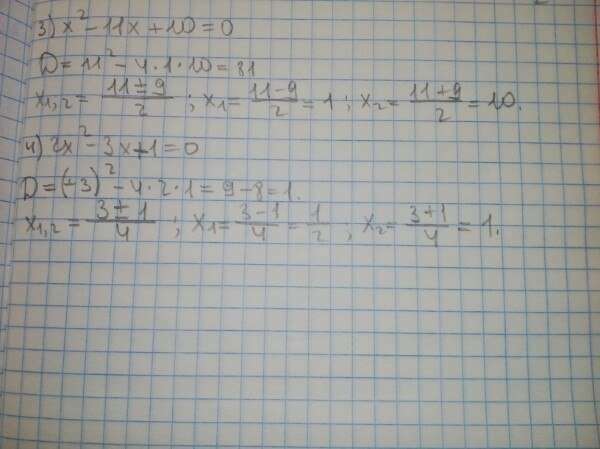 3) x² - 11x + 10 = 0
D = 11² - 4·1·10 = 81
x₁,₂ = (11 ± 9)/2 ; x₁ = (11 - 9)/2 = 1 ; x₂ = (11 + 9)/2 = 10.
4) 2x² - 3x + 1 = 0
D = (-3)² - 4·2·1 = 9 - 8 = 1.
x₁,₂ = (3 ± 1)/4 ; x₁ = (3 - 1)/4 = 1/2 ; x₂ = (3 + 1)/4 = 1.